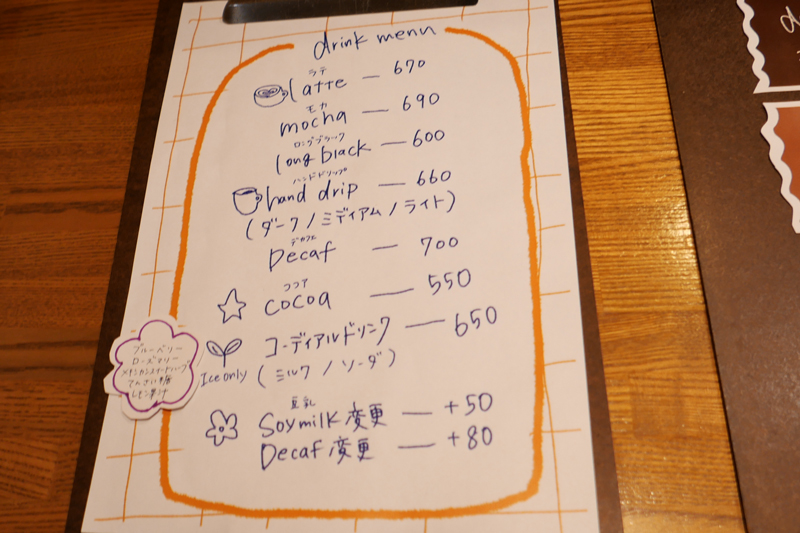 drink menu
ラテ
latte — 670
モカ
mocha — 690
ロングブラック
long black — 600
ハンドドリップ
hand drip — 660
(ダーク/ミディアム/ライト)
デカフェ
Decaf — 700
ココア
cocoa — 550
コーディアルドリンク — 650
Ice only (ミルク/ソーダ)
ブルーベリー
ローズマリー
メキシカンスイートハーブ
てんさい糖
レモン果汁
豆乳
Soymilk変更 — +50
Decaf変更 — +80